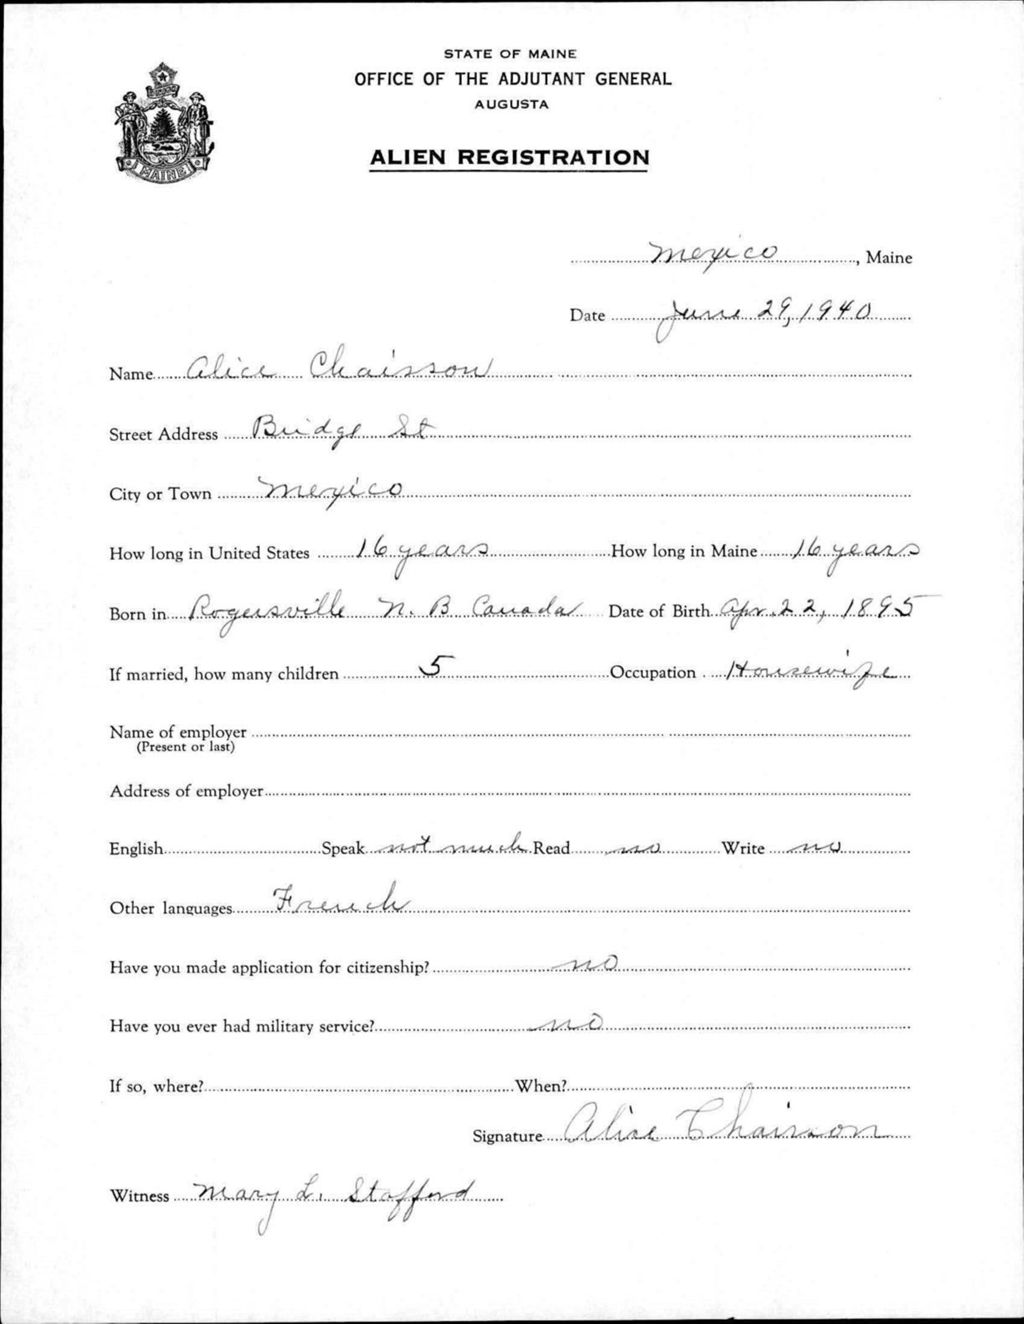 STATE OF MAINE
OFFICE OF THE ADJUTANT GENERAL
AUGUSTA
ALIEN REGISTRATION
MAINE
Mexico, Maine
Date June 29, 1940
Name Alice Chaisson
Street Address Bridge St
City or Town Mexico
How long in United States 16 years How long in Maine 16 years
Born in Rogersville N. B Canada Date of Birth Apr. 22, 1895
If married, how many children 5 Occupation Housewife
Name of employer
(Present or last)
Address of employer
English Speak not much Read no Write no
Other languages French
Have you made application for citizenship? no
Have you ever had military service? no
If so, where? When?
Signature Alice Chaisson
Witness Mary L. Stafford